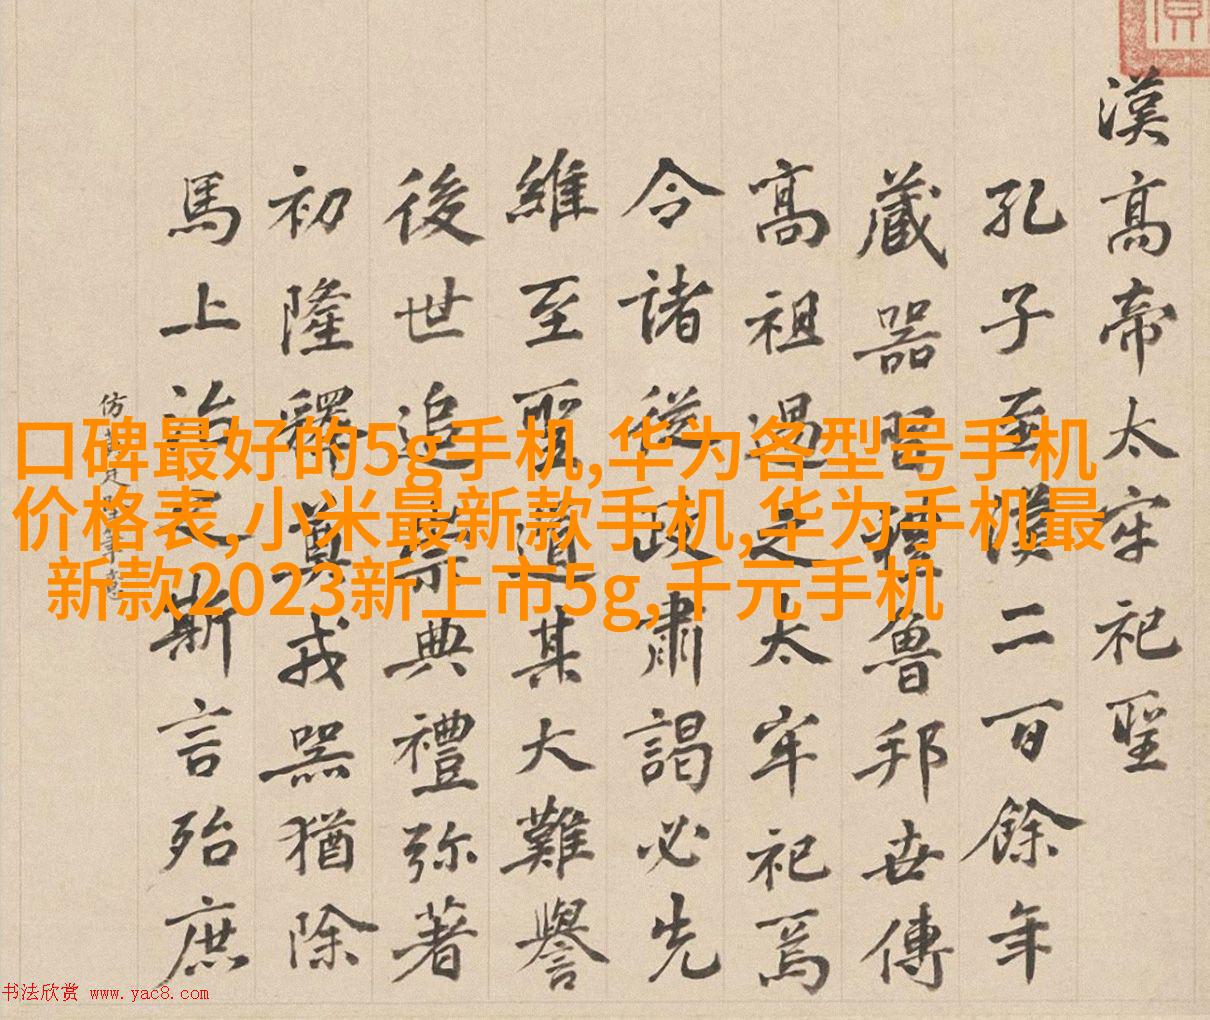 漢高帝太牢祀聖
孔子至漢二百餘年
藏器魯邦世傳
高祖過之太牢祀焉
令諸從政肅謁必先
維至聖道某大難譽
後世追崇典禮弥著
初隆釋奠戎器猶除
馬上治之斯言殆庶
仿
口碑最好的5g手机,华为各型号手机
价格表,小米最新款手机,华为手机最
新款2023新上市5g,千元手机
书法欣赏 www.yac8.com